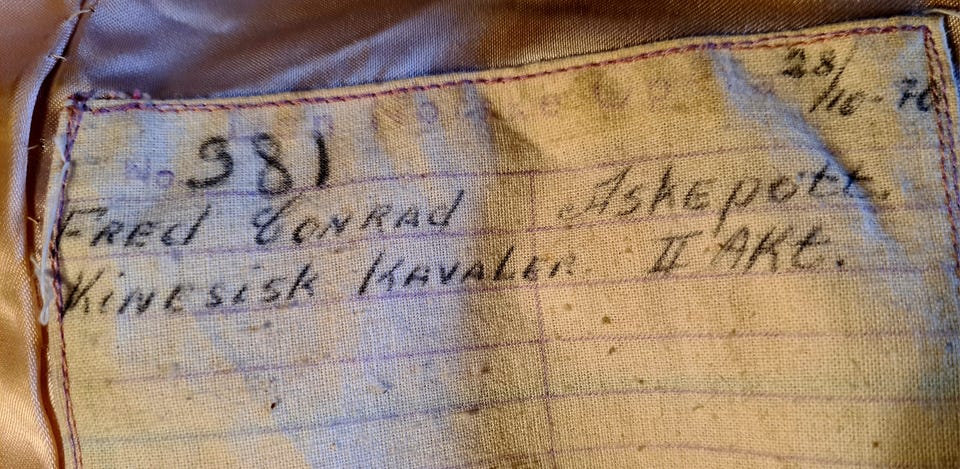 28/
/10-70
No 981
Fred Conrad Askepott.
Kinesisk Kavaler. II Akt.